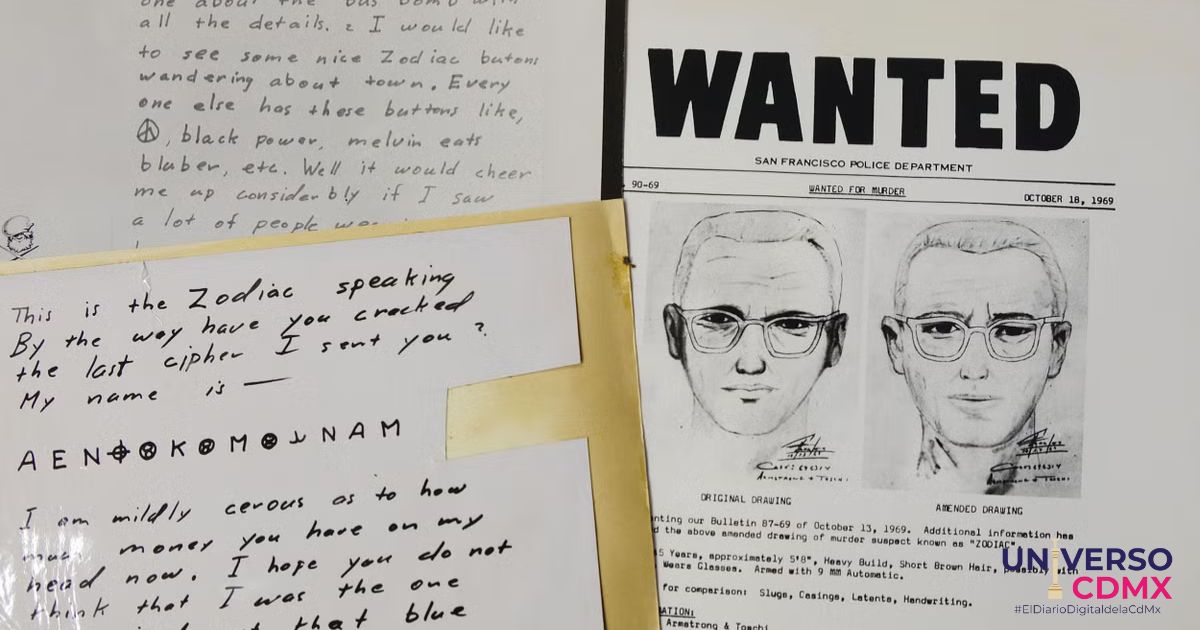 one about the bus bomb with
all the details. I would like
to see some nice Zodiac butons
wandering about town. Every
one else has these buttons like,
☮, black power, melvin eats
bluber, etc. Well it would cheer
me up considerbly if I saw
a lot of people
This is the Zodiac speaking
By the way have you cracked
the last cipher I sent you?
My name is —
AEN⌖⊗K⊗M⊗NAM
I am mildly cerous as to how
much money you have on my
head now. I hope you do not
think that I was the one
that blue
WANTED
SAN FRANCISCO POLICE DEPARTMENT
90-69
WANTED FOR MURDER
OCTOBER 18, 1969
ORIGINAL DRAWING
AMENDED DRAWING
our Bulletin 87-69 of October 13, 1969. Additional information has
the above amended drawing of murder suspect known as "ZODIAC".
5 Years, approximately 5'8", Heavy Build, Short Brown Hair, possibly with
Wears Glasses. Armed with 9 MM Automatic.
for comparison: Slugs, Casings, Latents, Handwriting.
Armstrong & Toschi
UNIVERSO
CDMX
#ElDiarioDigitaldelaCdMx